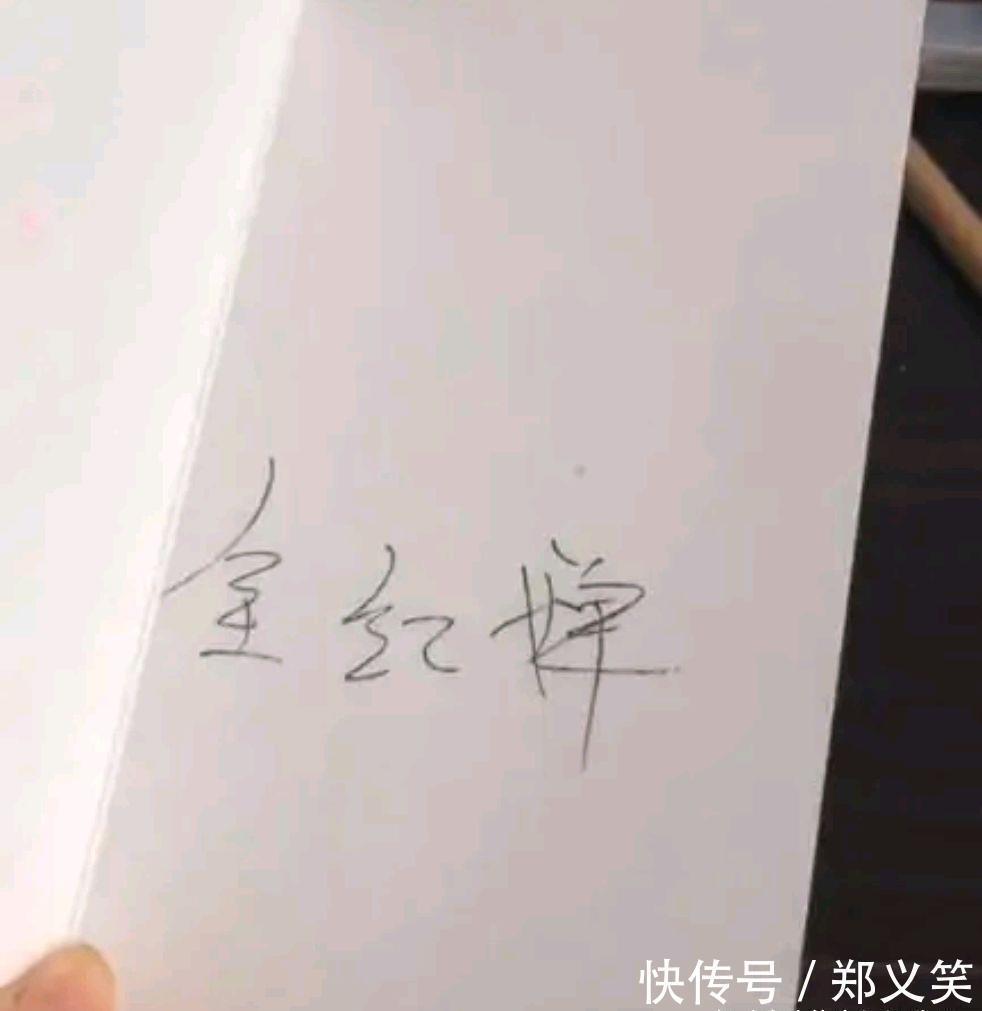 全红婵
快传号 / 郑义笑